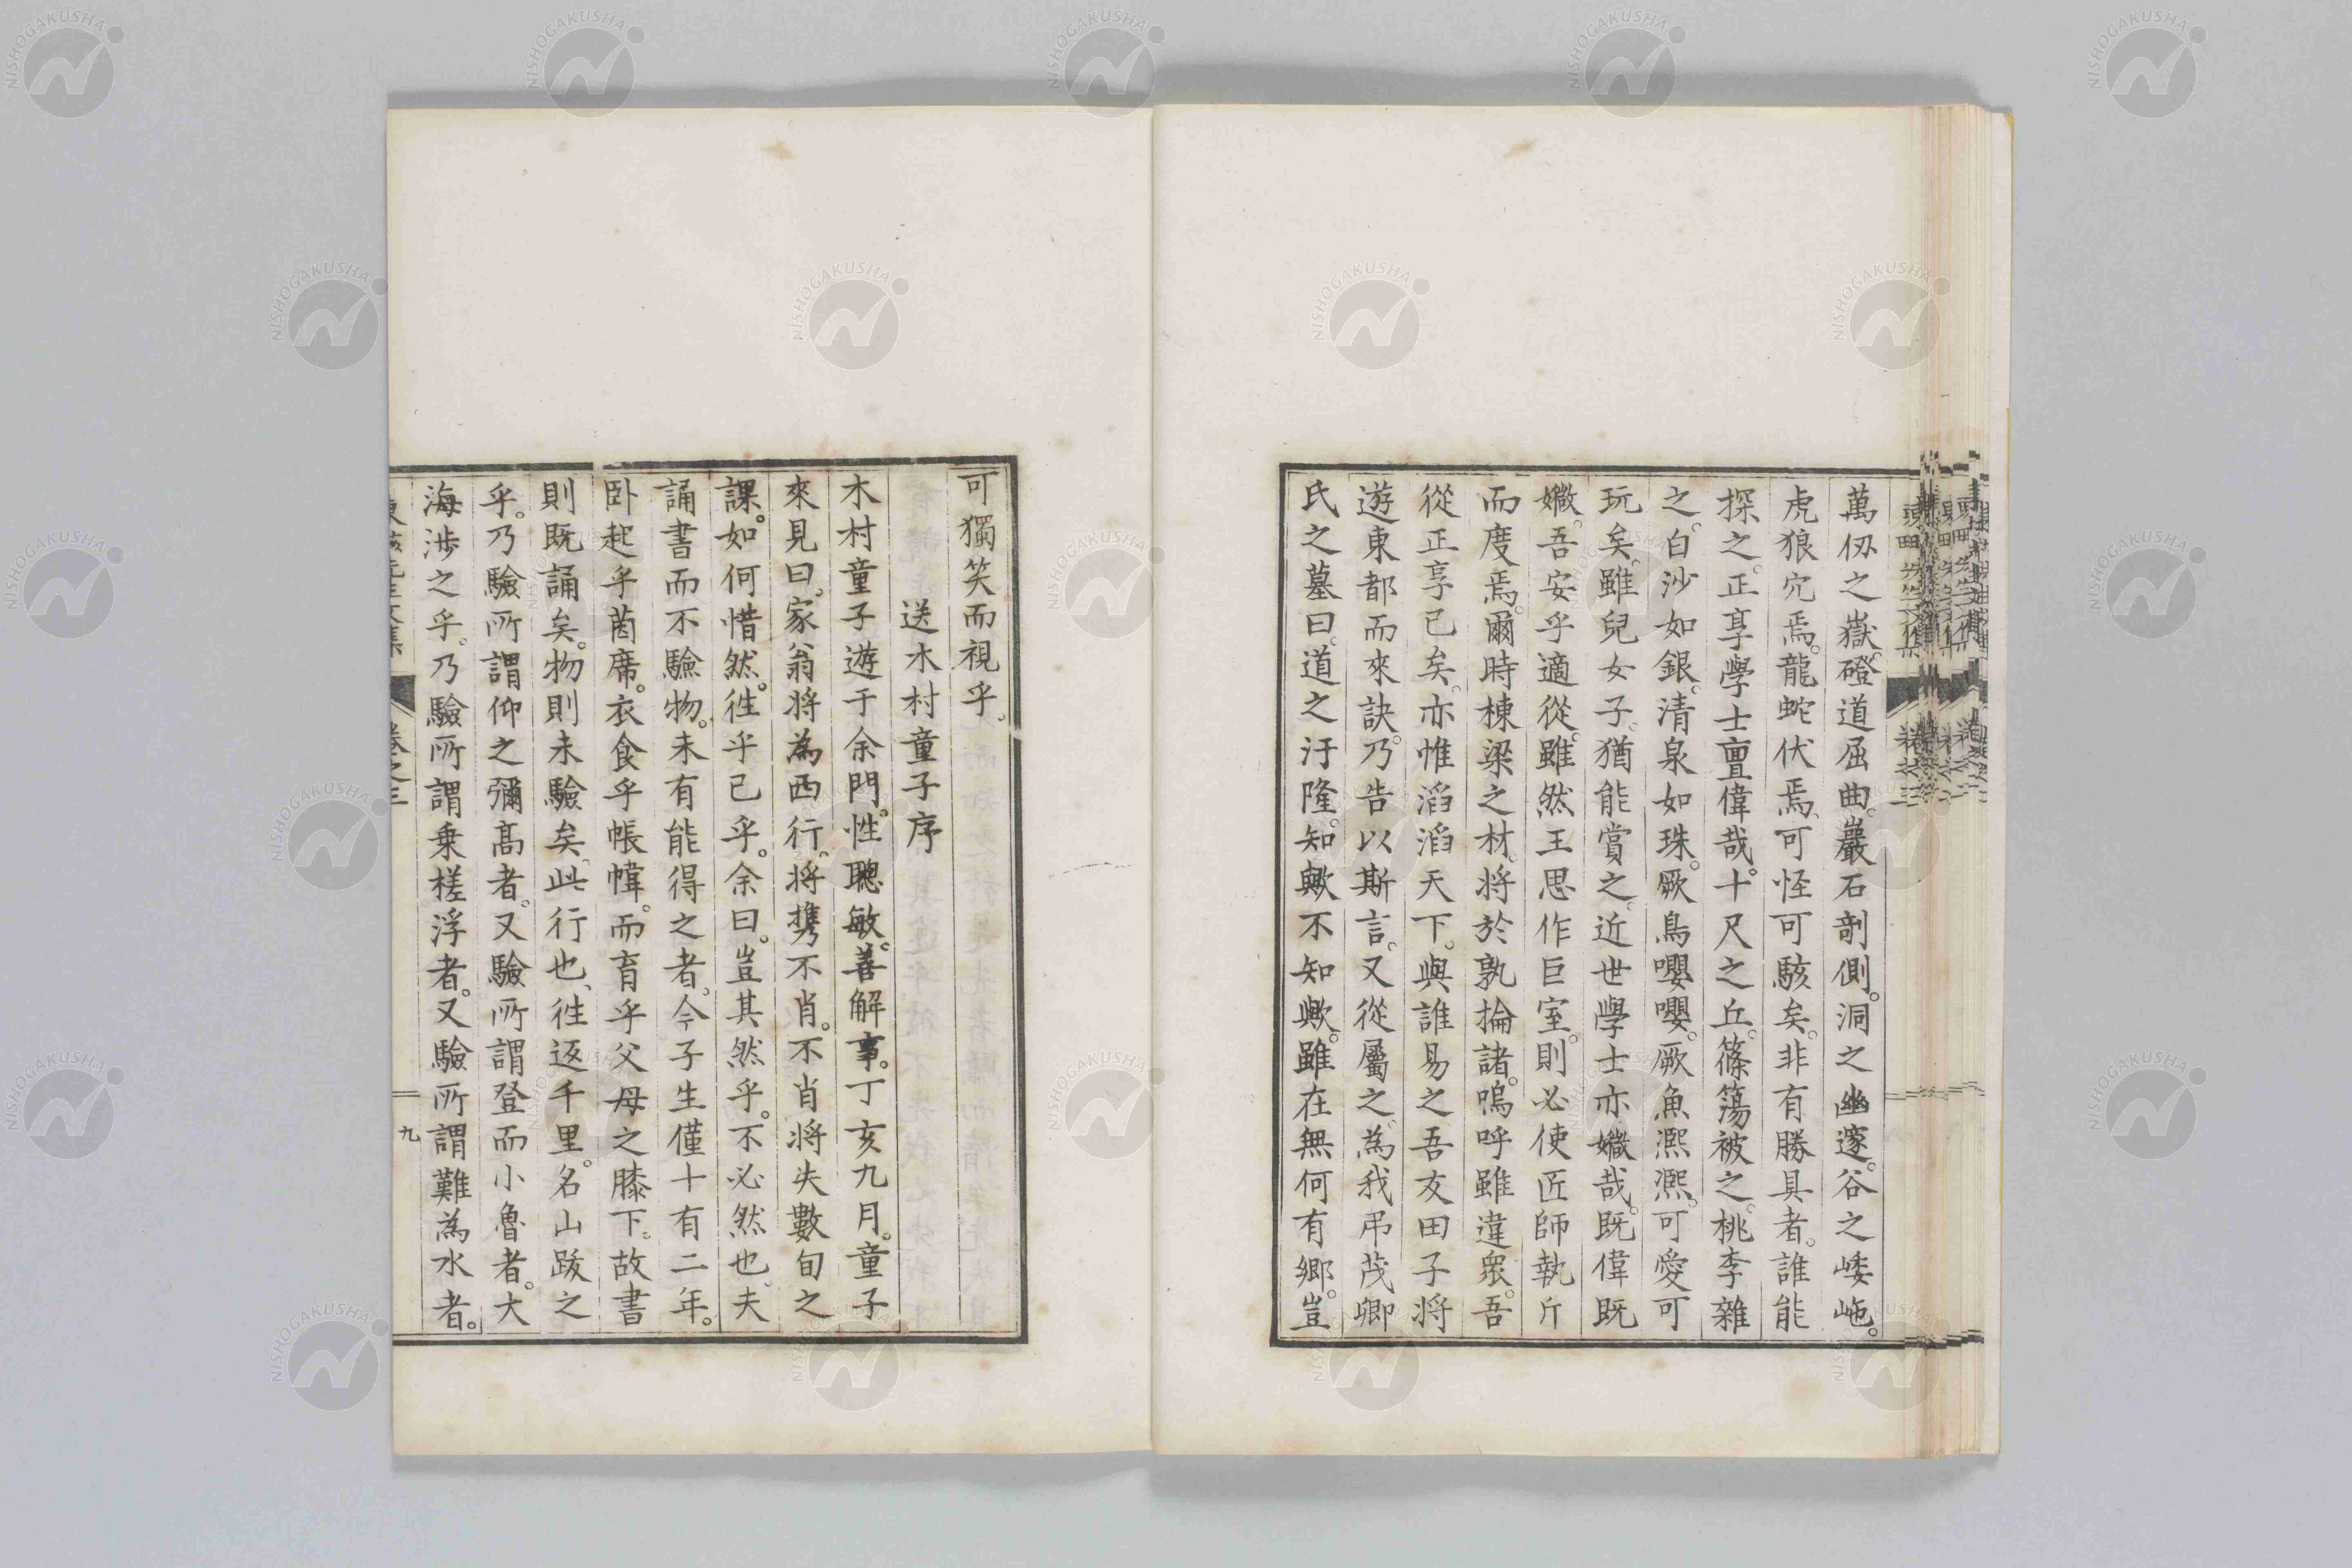 萬仞之嶽。磴道屈曲。巖石剖側。洞之幽邃。谷之崣崺。
虎狼穴焉。龍蛇伏焉。可怪可駭矣。非有勝具者。誰能
探之。正享學士亶偉哉。十尺之丘。篠簜被之。桃李雜
之。白沙如銀。清泉如珠。厥鳥嚶嚶。厥魚濔濔。可愛可
玩矣。雖兒女子。猶能賞之。近世學士亦孅哉。既偉既
孅。吾安乎適從。雖然王思作巨室。則必使匠師執斤
而度焉。爾時棟梁之材。將於孰掄諸。嗚呼雖違衆。吾
從正享已矣。亦惟滔滔天下。與誰易之。吾友田子將
遊東都而來訣。乃告以斯言。又從屬之。為我弔茂卿
氏之墓曰。道之汙隆。知歟不知歟。雖在無何有鄉。豈
可獨笑而視乎。
送木村童子序
木村童子遊于余門。性聰敏。善解事。丁亥九月。童子
來見曰。家翁将為西行。将携不肖。不肖将失數旬之
課。如何惜然。徃乎已乎。余曰。豈其然乎。不必然也。夫
誦書而不驗物。未有能得之者。今子生僅十有二年。
卧起乎茵席。衣食乎帳幃。而育乎父母之膝下。故書
則既誦矣。物則未驗矣。此行也、徃返千里。名山跋之
乎。乃驗所謂仰之彌髙者。又驗所謂登而小魯者。大
海渉之乎。乃驗所謂乗槎浮者。又驗所謂難為水者。
卷之三
九
NISHOGAKUSHA